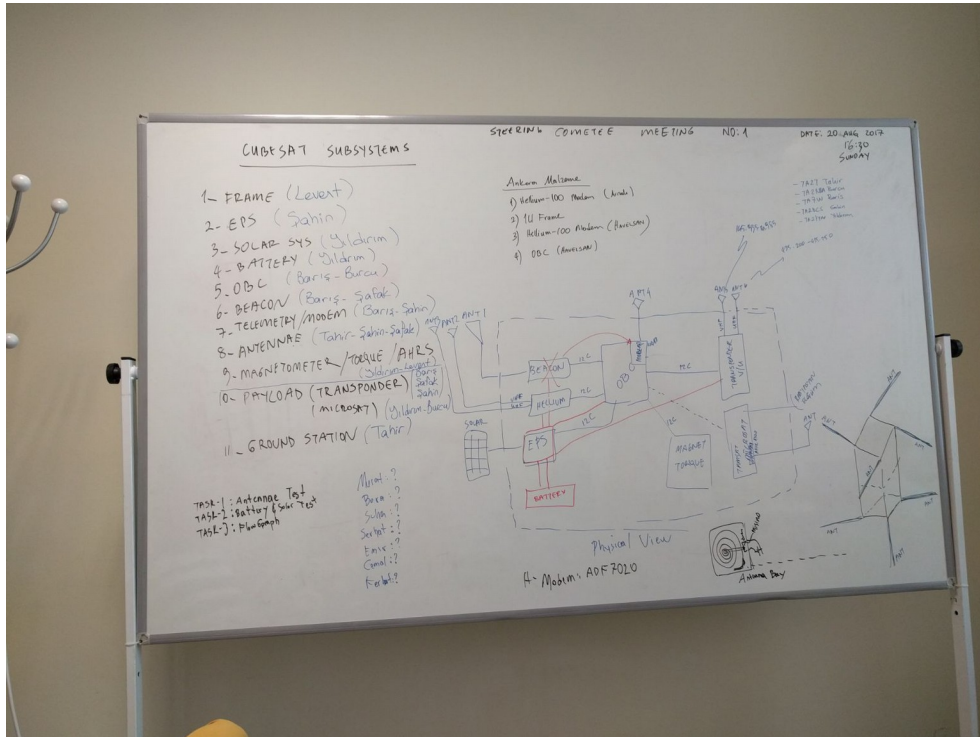 STEERING COMETEE MEETING NO:1
DATE: 20 AUG 2017
16:30
SUNDAY
CUBESAT SUBSYSTEMS
1- FRAME (Levent)
2- EPS (Şahin)
3- SOLAR SYS (Yıldırım)
4- BATTERY (Yıldırım)
5- OBC (Barış-Burcu)
6- BEACON (Barış-Şafak)
7- TELEMETRY/MODEM (Barış-Şahin)
8- ANTENNAE (Tahir-Şahin-Şafak)
9- MAGNETOMETER/TORQUE/AHRS
(Yıldırım-Levent)
10- PAYLOAD (TRANSPONDER) Barış
Şafak
Şahin
(MICROSAT) (Yıldırım-Burcu)
11- GROUND STATION (Tahir)
TASK-1: Antennae Test
TASK-2: Battery & Solar Test
TASK-3:
Murat:?
Bora:?
Suha:?
Serhat:?
Emir:?
Cemal:?
Ankara Malzeme
1) Helium-100 Modem
2) 1U Frame
3) Helium-100 Modem (HAVELSAN)
4) OBC (HAVELSAN)
TA2T Tahir
ANT2
ANT1
ANT4
BEACON
HELIUM
EPS
BATTERY
SOLAR
I2C
I2C
I2C
I2C
I2C
OBC
TRANSPONDER
V/U
MAGNET
TORQUE
ANT
Physical View
H- Modem: ADF7020
Antenna Bay
ANT
ANT
ANT
ANT